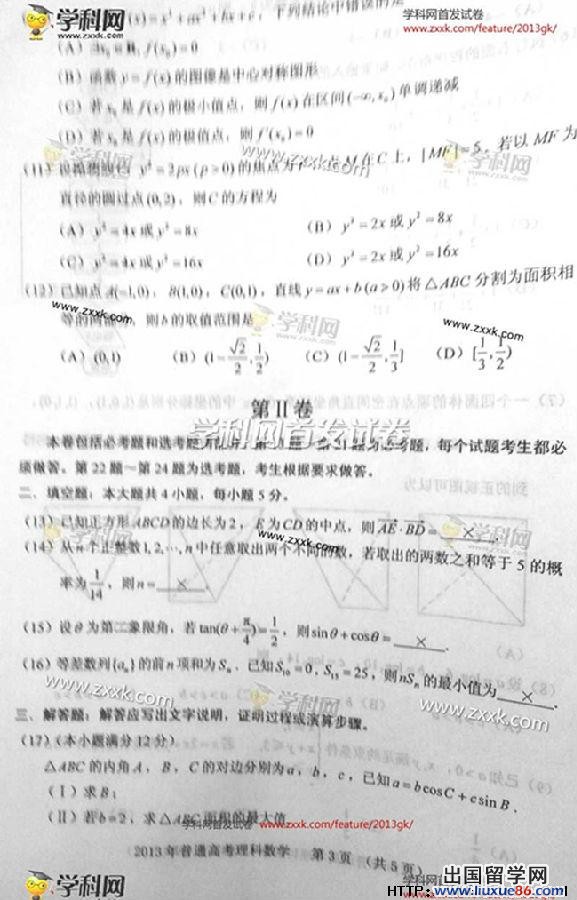 学科网 学科网首发试卷
www.zxxk.com/feature/2013gk/
下列结论中错误的是
(B) 函数 y = f(x) 的图像是中心对称图形
(C) 若 x₀ 是 f(x) 的极小值点，则 f(x) 在区间 (-∞, x₀) 单调递减
(D) 若 x₀ 是 f(x) 的极值点，则 f'(x₀) = 0
学科网
www.zxxk.com
(11) y² = 2px (p > 0) 的焦点为 点 M 在 C 上，|MF| = 5，若以 MF 为
直径的圆过点 (0,2)，则 C 的方程为
(A) y² = 4x 或 y² = 8x (B) y² = 2x 或 y² = 8x
(C) y² = 4x 或 y² = 16x (D) y² = 2x 或 y² = 16x
(12) 已知点 A(-1,0)，B(1,0)，C(0,1)，直线 y = ax + b (a > 0) 将 △ABC 分割为面积相
等的两部分，则 b 的取值范围是
www.zxxk.com 学科网 www.zxxk.com
(A) (0,1) (B) (1-√2/2, 1/2) (C) (1-√2/2, 1/3] (D) [1/3, 1/2)
第 II 卷
学科网首发试卷
本卷包括必考题和选考题两部分。第 题～第 21 题为必考题，每个试题考生都必
须做答。第 22 题～第 24 题为选考题，考生根据要求做答。
二、填空题：本大题共 4 小题，每小题 5 分。
(13) 已知正方形 ABCD 的边长为 2，E 为 CD 的中点，则 AE · BD = × .
学科网 www.zxxk.com
(14) 从 n 个正整数 1, 2, …, n 中任意取出两个不同的数，若取出的两数之和等于 5 的概
率为 1/14，则 n = ×
(15) 设 θ 为第二象限角，若 tan(θ + π/4) = 1/2，则 sinθ + cosθ = × .
(16) 等差数列 {aₙ} 的前 n 项和为 Sₙ，已知 S₁₀ = 0，S₁₅ = 25，则 nSₙ 的最小值为 × .
www.zxxk.com 学科网 www.zxxk.com
三、解答题：解答应写出文字说明，证明过程或演算步骤。
(17) (本小题满分 12 分)
△ABC 的内角 A，B，C 的对边分别为 a，b，c，已知 a = b cosC + c sinB .
(Ⅰ) 求 B；
(Ⅱ) 若 b = 2，求 △ABC 面积的最大值
学科网首发试卷 www.zxxk.com/feature/2013gk/
2013 年普通高考理科数学 第 3 页 (共 5 页)
学科网
出国留学网
HTTP: www.liuxue86.com